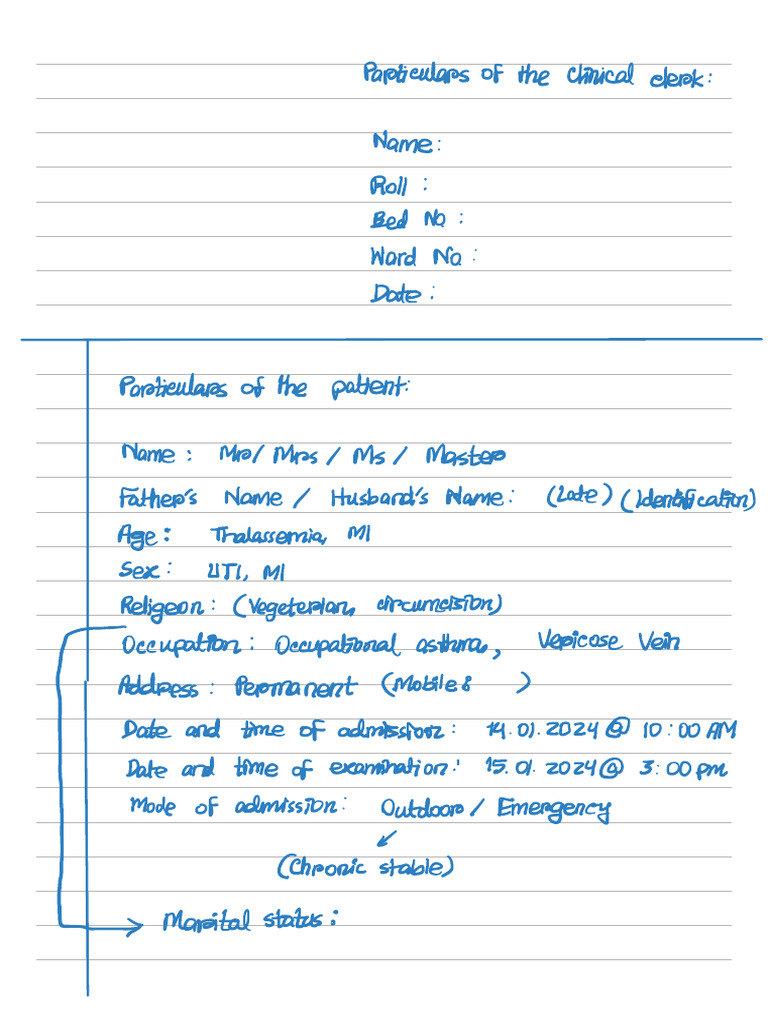 Particulars of the clinical clerk:
Name:
Roll :
Bed No :
Ward No :
Date :
Particulars of the patient:
Name : Mr/ Mrs / Ms / Master
Father's Name / Husband's Name: (Late) (Identification)
Age: Thalassemia, MI
Sex: UTI, MI
Religeon: (Vegeterian, circumcision)
Occupation: Occupational asthma, Vericose Vein
Address: Permanent (Mobile: )
Date and time of admission: 14.01.2024 @ 10:00 AM
Date and time of examination: 15.01.2024 @ 3:00 pm
Mode of admission: Outdoor / Emergency
(Chronic stable)
Marital status: